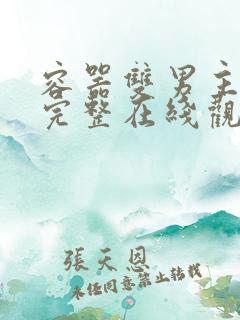 容器雙男主
完整在线觀
張天恩
未经同意禁止转载